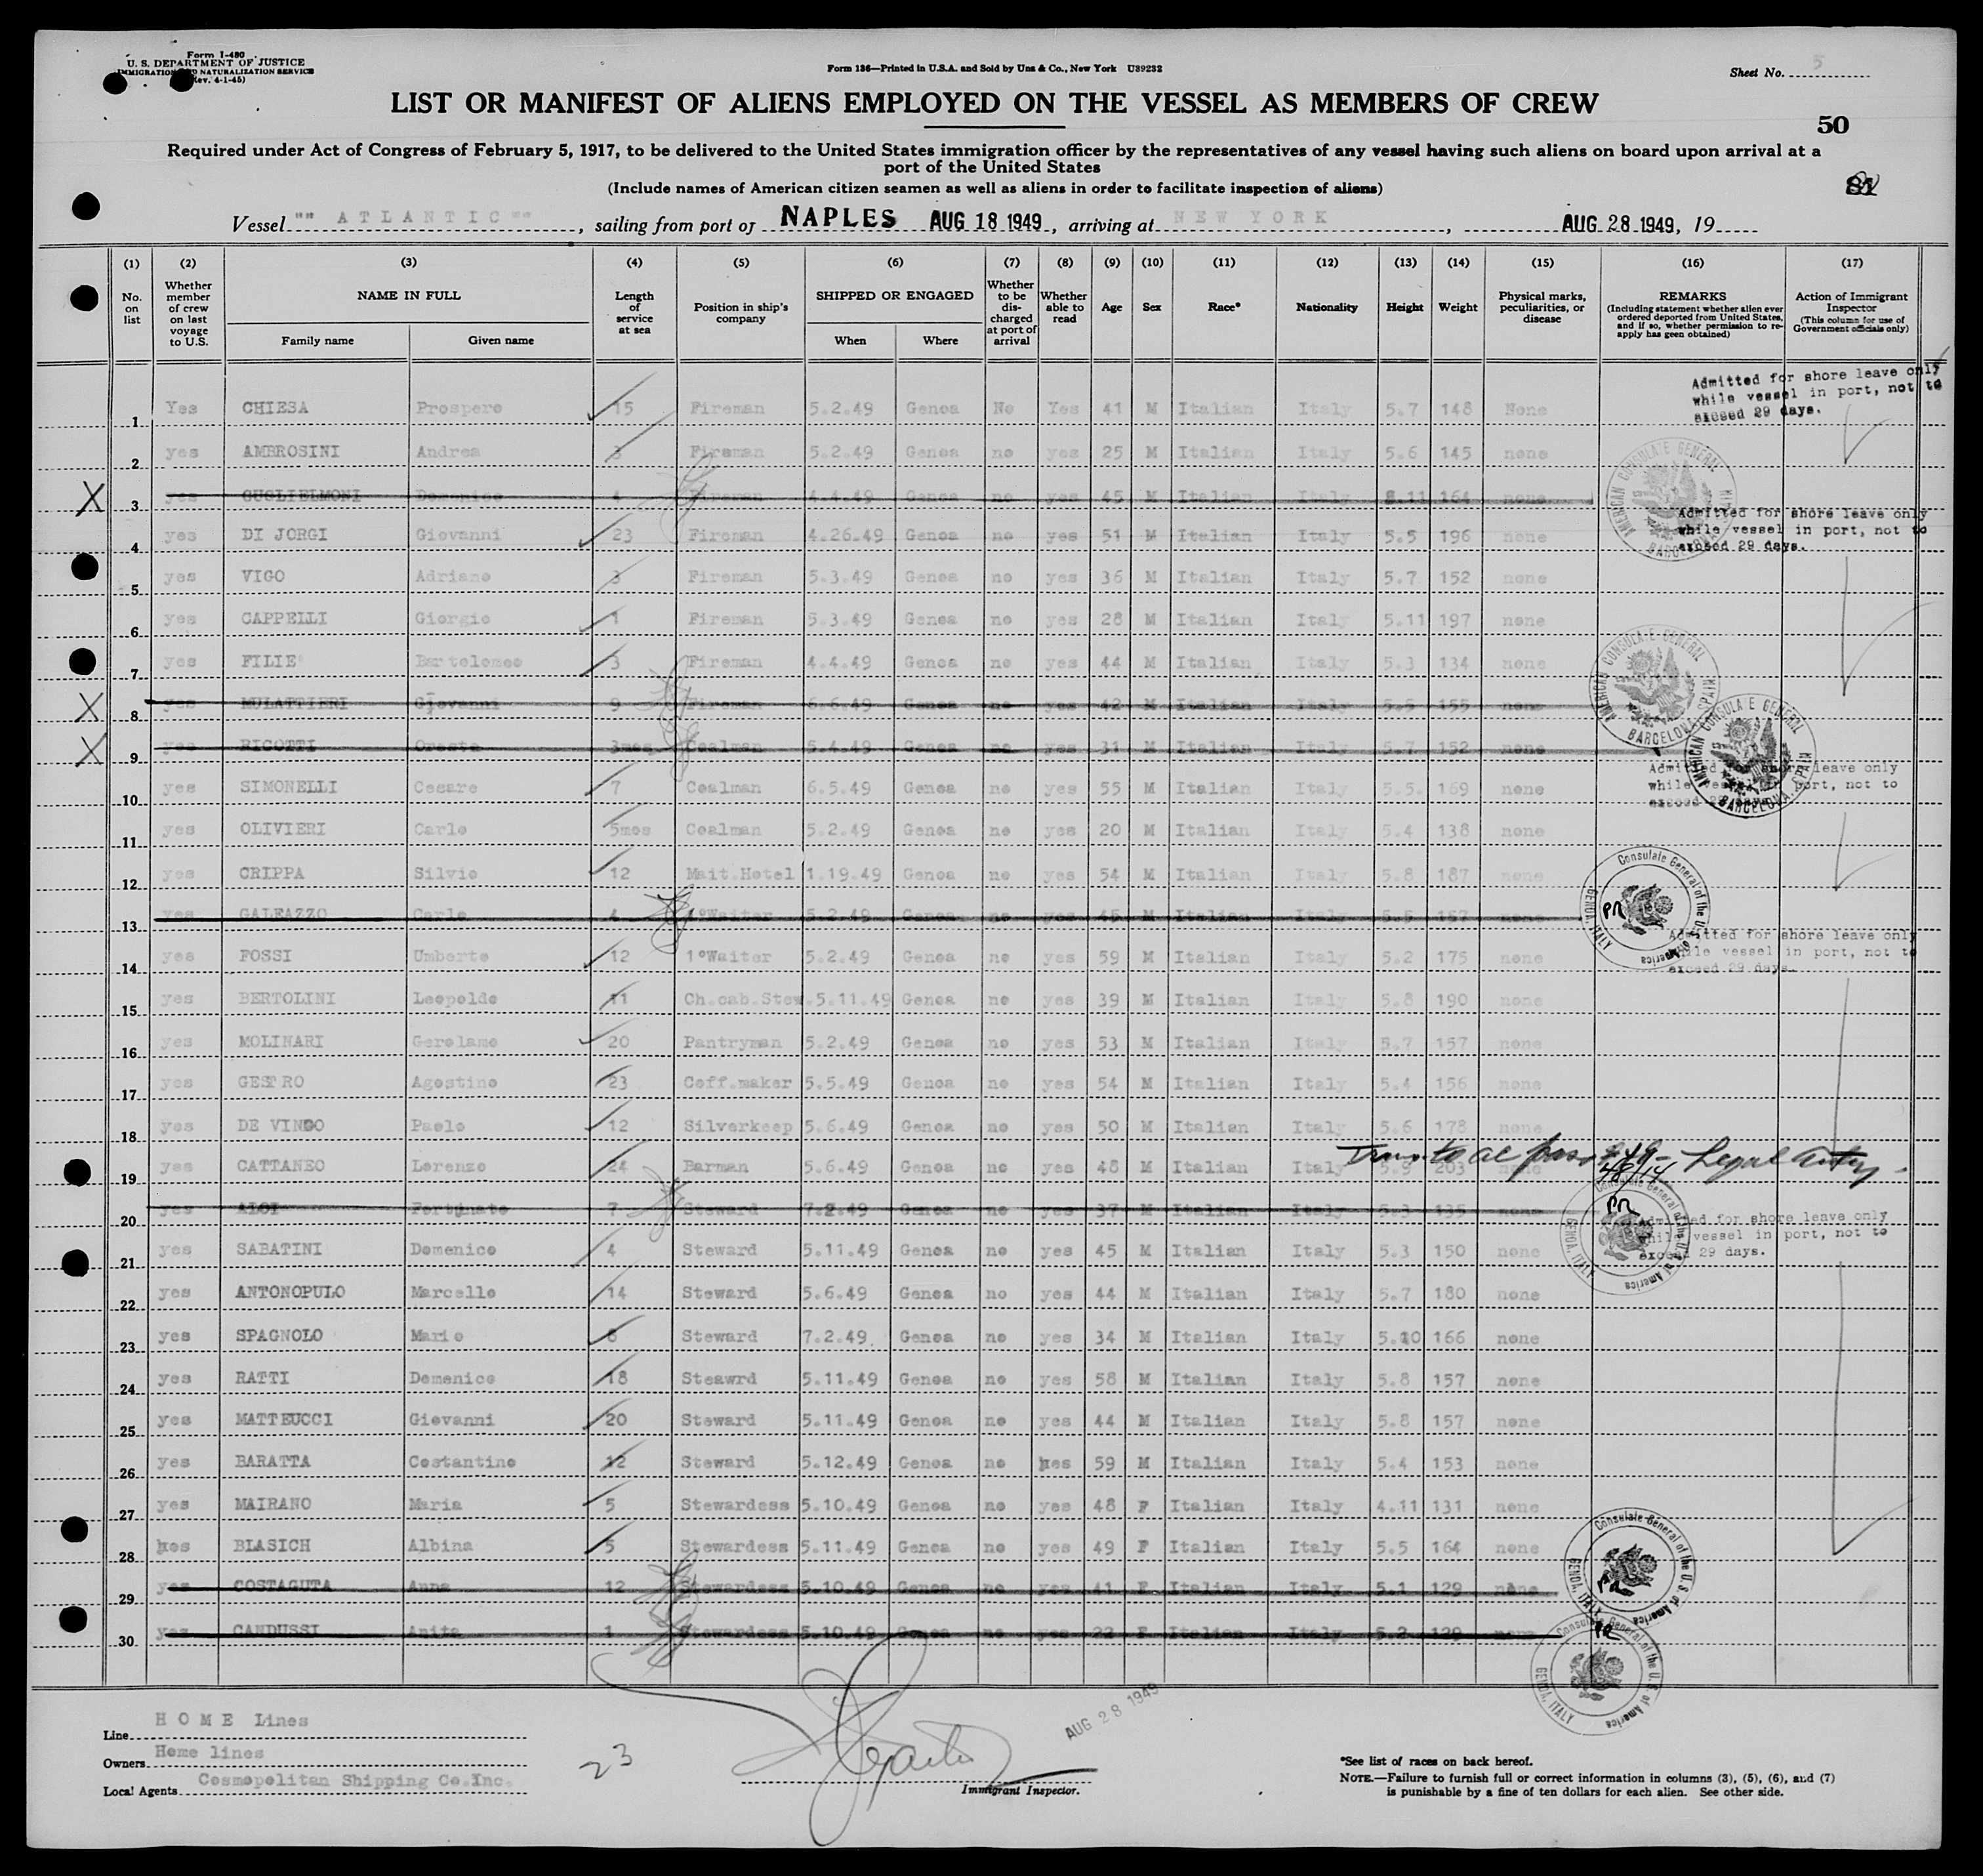 Form I-480
U. S. DEPARTMENT OF JUSTICE
IMMIGRATION AND NATURALIZATION SERVICE
(Rev. 4-1-45)
Form 136—Printed in U.S.A. and Sold by Unz & Co., New York U39232
Sheet No. 5
LIST OR MANIFEST OF ALIENS EMPLOYED ON THE VESSEL AS MEMBERS OF CREW
50
Required under Act of Congress of February 5, 1917, to be delivered to the United States immigration officer by the representatives of any vessel having such aliens on board upon arrival at a
port of the United States
(Include names of American citizen seamen as well as aliens in order to facilitate inspection of aliens)
Vessel "" ATLANTIC "", sailing from port of NAPLES AUG 18 1949, arriving at NEW YORK, AUG 28 1949, 19
(1) (2) (3) (4) (5) (6) (7) (8) (9) (10) (11) (12) (13) (14) (15) (16) (17)
No. on list
Whether member of crew on last voyage to U.S.
NAME IN FULL
Family name
Given name
Length of service at sea
Position in ship's company
SHIPPED OR ENGAGED
When
Where
Whether to be discharged at port of arrival
Whether able to read
Age
Sex
Race*
Nationality
Height
Weight
Physical marks, peculiarities, or disease
REMARKS
(Including statement whether alien ever ordered deported from United States, and if so, whether permission to re-apply has geen obtained)
Action of Immigrant Inspector
(This column for use of Government officials only)
Admitted for shore leave only
while vessel in port, not to
exceed 29 days.
1 Yes CHIESA Prospero 15 Fireman 5.2.49 Genoa No Yes 41 M Italian Italy 5.7 148 None
2 yes AMBROSINI Andrea 3 Fireman 5.2.49 Genoa no yes 25 M Italian Italy 5.6 145 none
X 3 yes GUGLIELMONI Domenico 4 Fireman 4.4.49 Genoa no yes 45 M Italian Italy 5.11 164 none
AMERICAN CONSULATE GENERAL BARCELONA, SPAIN
Admitted for shore leave only
while vessel in port, not to
exceed 29 days.
4 yes DI JORGI Giovanni 23 Fireman 4.26.49 Genoa no yes 51 M Italian Italy 5.5 196 none
5 yes VIGO Adriano 3 Fireman 5.3.49 Genoa no yes 36 M Italian Italy 5.7 152 none
6 yes CAPPELLI Giorgio 1 Fireman 5.3.49 Genoa no yes 28 M Italian Italy 5.11 197 none
7 yes FILIE' Bartolomeo 3 Fireman 4.4.49 Genoa no yes 44 M Italian Italy 5.3 134 none
X 8 yes MULATTIERI Giovanni 9 Fireman 6.6.49 Genoa no yes 42 M Italian Italy 5.5 155 none
AMERICAN CONSULATE GENERAL BARCELONA, SPAIN
X 9 yes RICOTTI Oreste 3mos Coalman 5.4.49 Genoa no yes 31 M Italian Italy 5.7 152 none
AMERICAN CONSULATE GENERAL BARCELONA, SPAIN
Admitted for shore leave only
while vessel in port, not to
exceed 29 days.
10 yes SIMONELLI Cesare 7 Coalman 6.5.49 Genoa no yes 55 M Italian Italy 5.5. 169 none
11 yes OLIVIERI Carlo 5mos Coalman 5.2.49 Genoa no yes 20 M Italian Italy 5.4 138 none
12 yes CRIPPA Silvio 12 Mait.Hotel 1.19.49 Genoa no yes 54 M Italian Italy 5.8 187 none
13 yes GALEAZZO Carlo 4 1°Waiter 5.2.49 Genoa no yes 45 M Italian Italy 5.5 157 none
Consulate General of the U.S. of America GENOA, ITALY PR
Admitted for shore leave only
while vessel in port, not to
exceed 29 days.
14 yes FOSSI Umberto 12 1°Waiter 5.2.49 Genoa no yes 59 M Italian Italy 5.2 175 none
15 yes BERTOLINI Leopoldo 11 Ch.cab.Stew. 5.11.49 Genoa no yes 39 M Italian Italy 5.8 190 none
16 yes MOLINARI Gerolamo 20 Pantryman 5.2.49 Genoa no yes 53 M Italian Italy 5.7 157 none
17 yes GESTRO Agostino 23 Coff.maker 5.5.49 Genoa no yes 54 M Italian Italy 5.4 156 none
18 yes DE VINGO Paolo 12 Silverkeep 5.6.49 Genoa no yes 50 M Italian Italy 5.6 178 none
19 yes CATTANEO Lorenzo 24 Barman 5.6.49 Genoa no yes 48 M Italian Italy 5.9 203 none
20 yes ALOI Fortunato 7 Steward 7.2.49 Genoa no yes 37 M Italian Italy 5.3 135 none
Consulate General of the U.S. of America GENOA, ITALY PR
Admitted for shore leave only
while vessel in port, not to
exceed 29 days.
21 yes SABATINI Domenico 4 Steward 5.11.49 Genoa no yes 45 M Italian Italy 5.3 150 none
22 yes ANTONOPULO Marcello 14 Steward 5.6.49 Genoa no yes 44 M Italian Italy 5.7 180 none
23 yes SPAGNOLO Mario 6 Steward 7.2.49. Genoa no yes 34 M Italian Italy 5.10 166 none
24 yes RATTI Domenico 18 Steawrd 5.11.49 Genoa no yes 58 M Italian Italy 5.8 157 none
25 yes MATTEUCCI Giovanni 20 Steward 5.11.49 Genoa no yes 44 M Italian Italy 5.8 157 none
26 yes BARATTA Costantino 12 Steward 5.12.49 Genoa no yes 59 M Italian Italy 5.4 153 none
27 yes MAIRANO Maria 5 Stewardess 5.10.49 Genoa no yes 48 F Italian Italy 4.11 131 none
28 yes BLASICH Albina 5 Stewardess 5.11.49 Genoa no yes 49 F Italian Italy 5.5 164 none
29 yes COSTAGUTA Anna 12 Stewardess 5.10.49 Genoa no yes 41 F Italian Italy 5.1 129 none
Consulate General of the U.S. of America GENOA, ITALY PR
30 yes CANDUSSI Anita 1 Stewardess 5.10.49 Genoa no yes 22 F Italian Italy 5.2 129 none
Consulate General of the U.S. of America GENOA, ITALY PR
Line HOME Lines
Owners Home lines
Local Agents Cosmopolitan Shipping Co.Inc.
23
AUG 28 1949
Immigrant Inspector.
*See list of races on back hereof.
NOTE.—Failure to furnish full or correct information in columns (3), (5), (6), and (7)
is punishable by a fine of ten dollars for each alien. See other side.